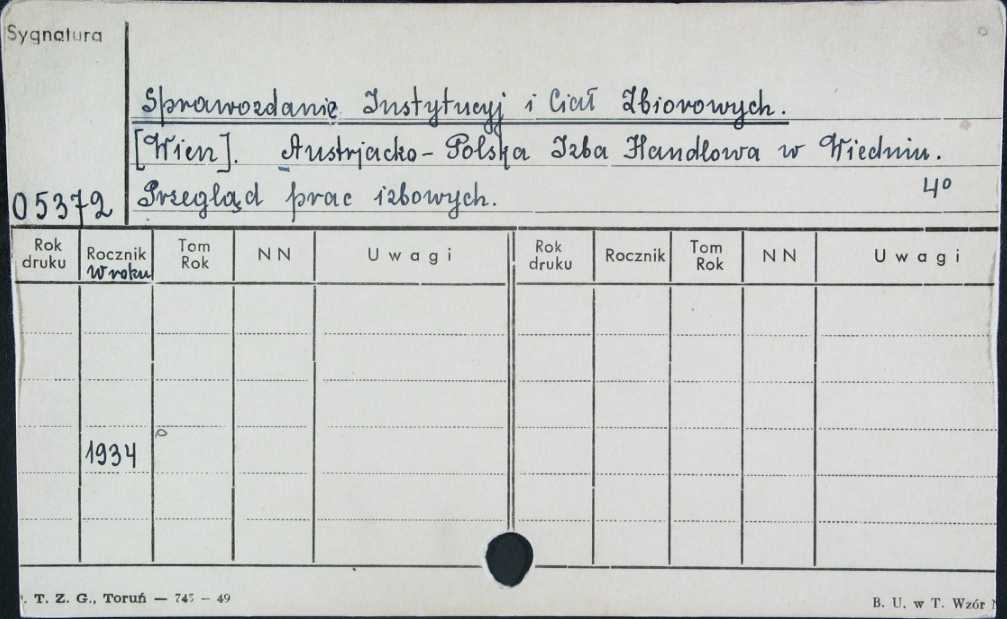 Sygnatura
Sprawozdanie Instytucyj i Ciał Zbiorowych.
[Wien]. Austrjacko-Polska Izba Handlowa w Wiedniu.
05372 Przegląd prac izbowych. 4º
Rok druku Rocznik W roku Tom Rok NN Uwagi Rok druku Rocznik Tom Rok NN Uwagi
1934
. T. Z. G., Toruń — 745 — 49 B. U. w T. Wzór